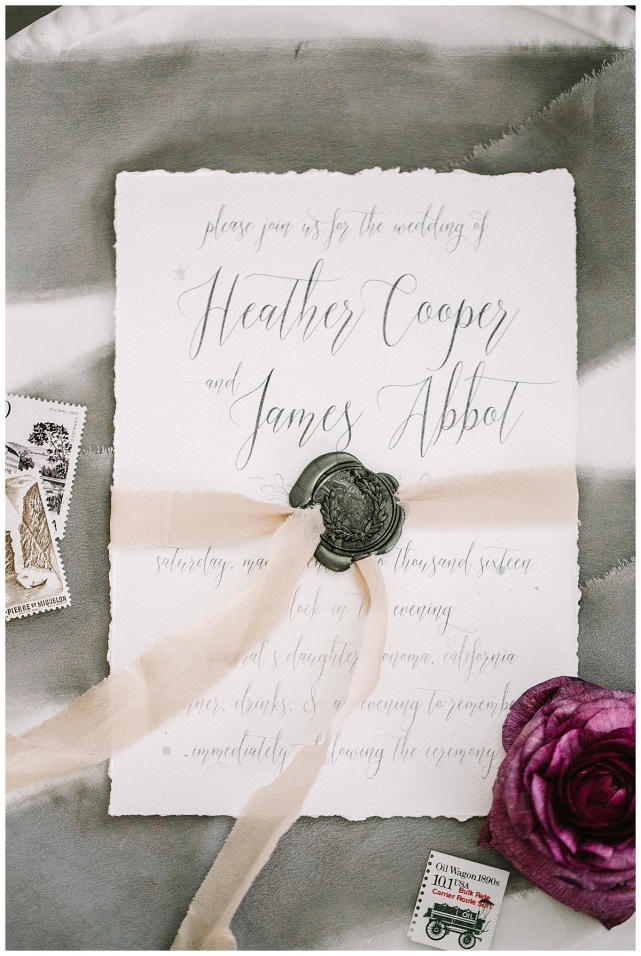 please join us for the wedding of
Heather Cooper
and
James Abbot
saturday, thousand sixteen
evening
daughter california
drinks, & evening to
immediately the ceremony
1
-PIERRE ET MIQUELON
Oil Wagon 1890s
10.1 USA
Bulk Rate
Carrier Route Sort
OIL